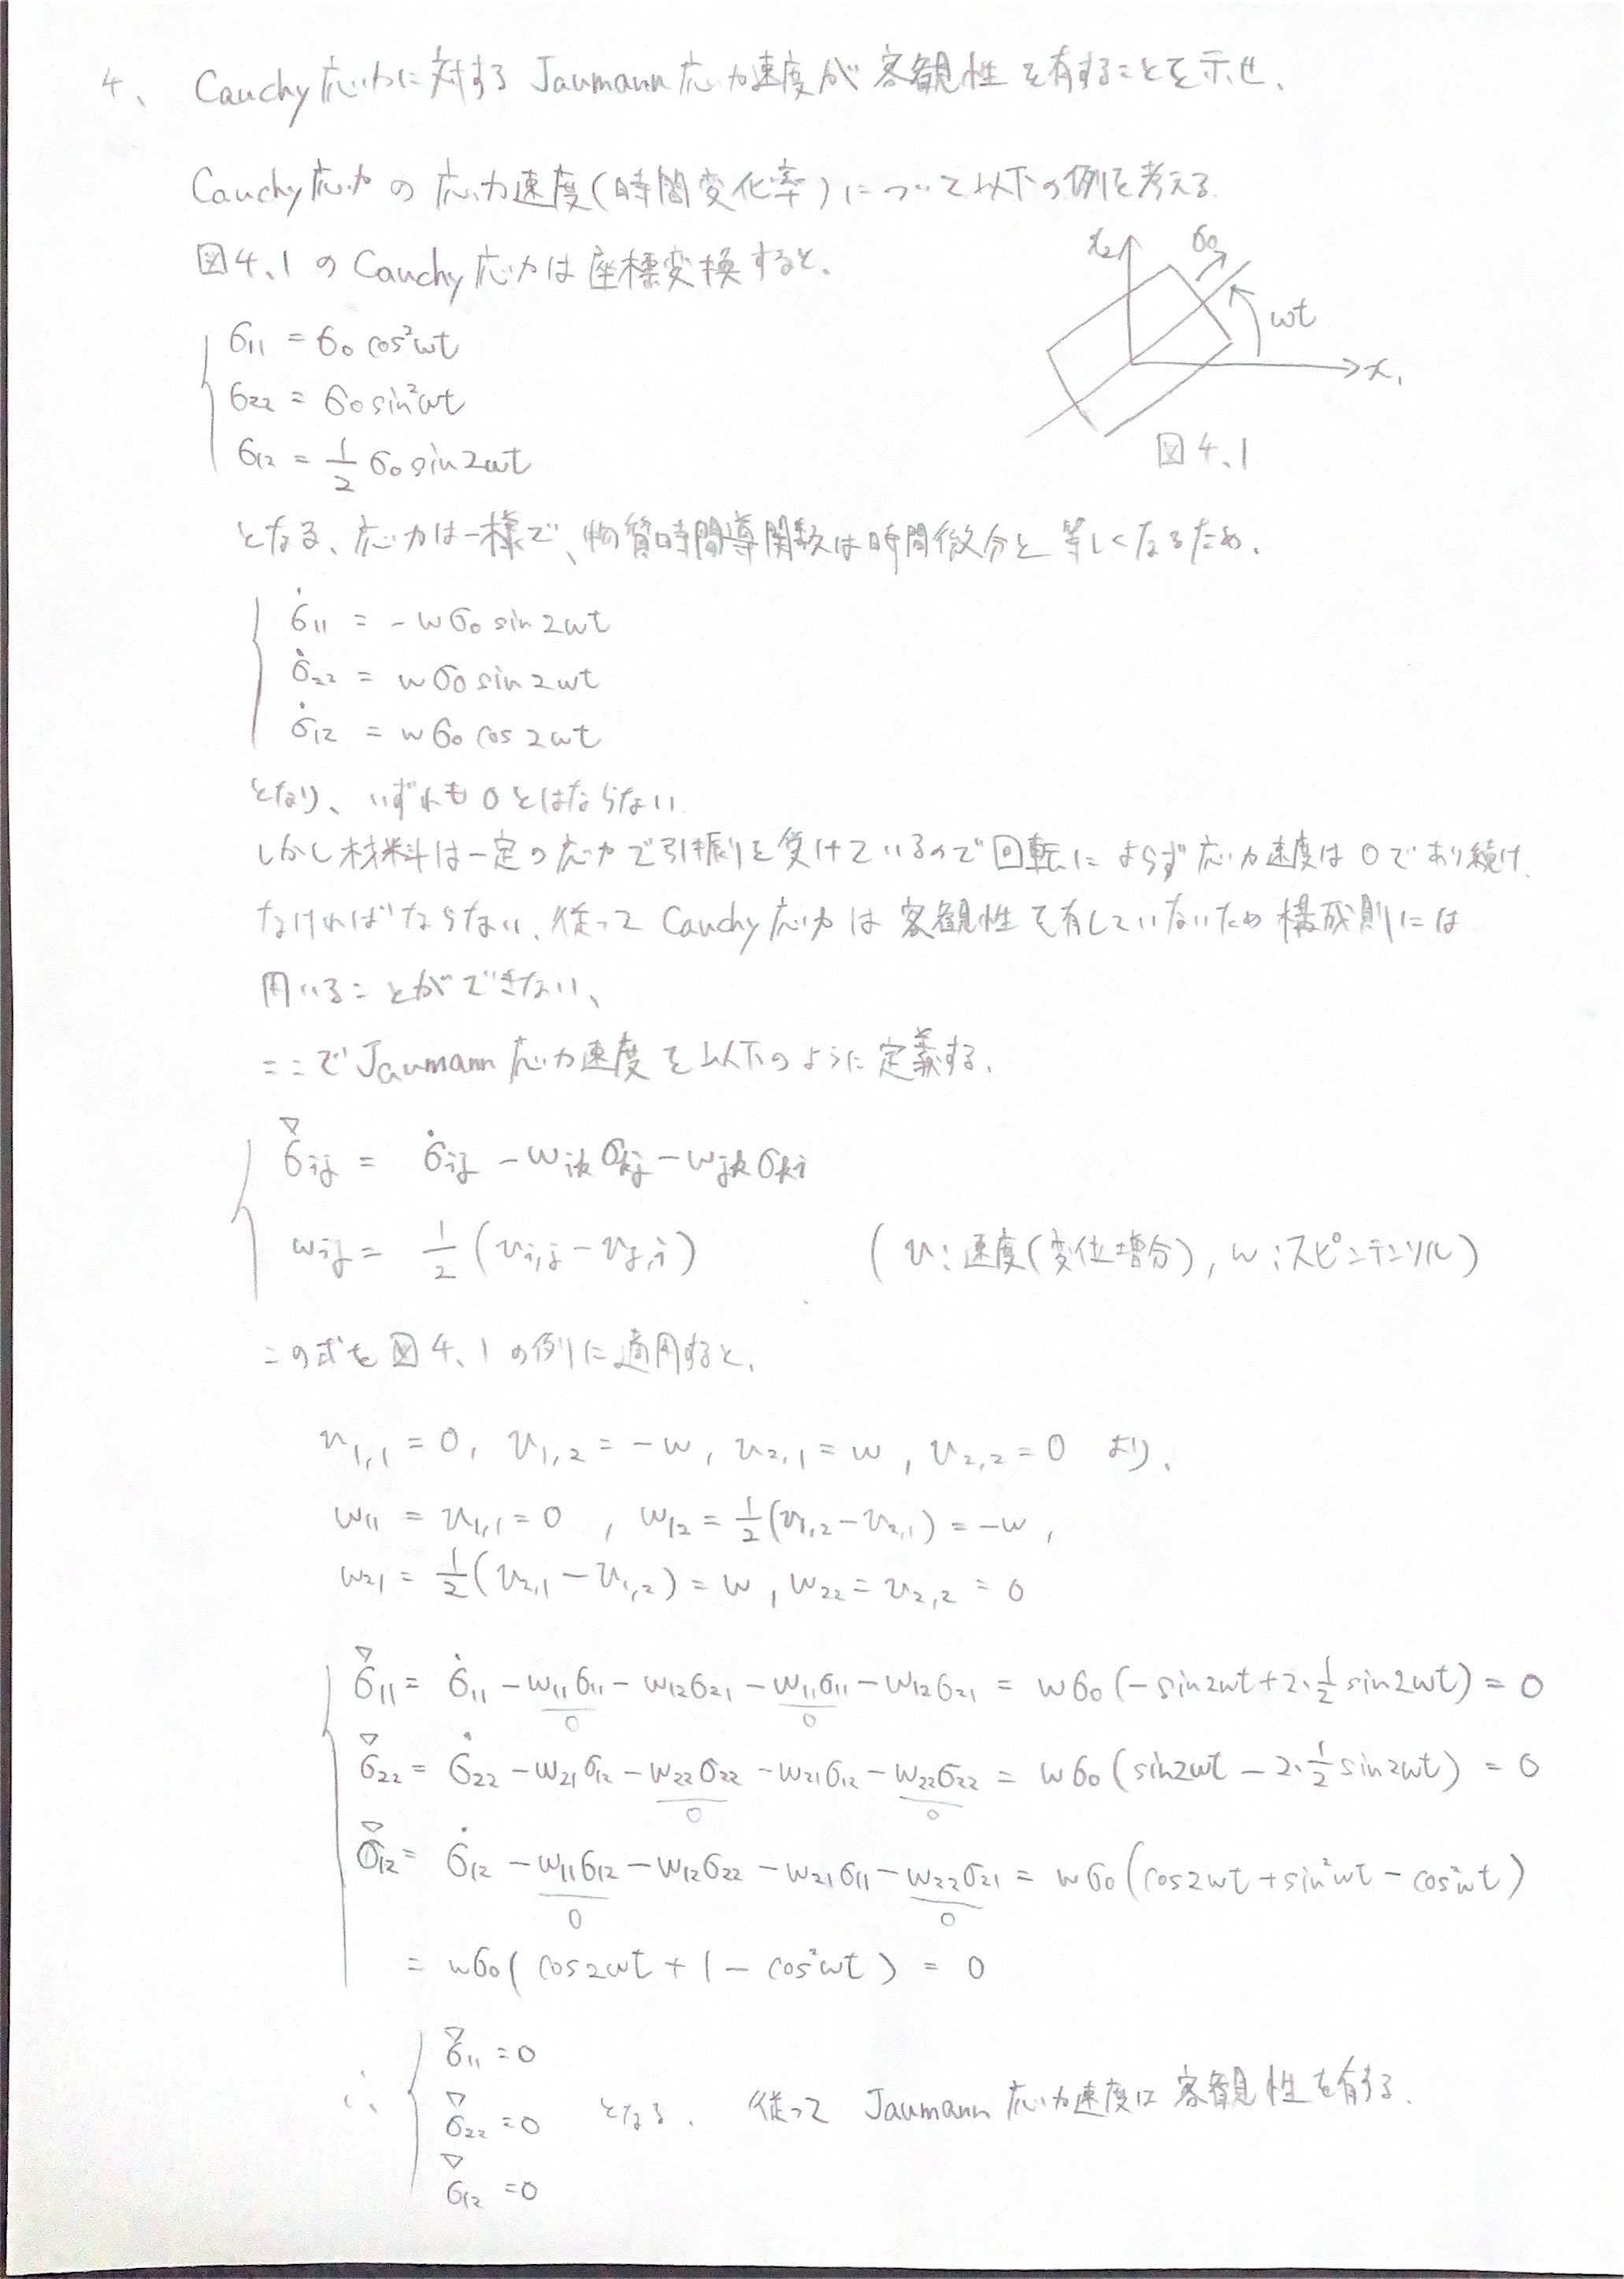 4、 Cauchy応力に対するJaumann応力速度が客観性を有することを示せ.
Cauchy応力の応力速度(時間変化率)について以下の例を考える.
図4.1のCauchy応力は座標変換すると、
x₂ σ₀ ωt x₁
図4.1
σ₁₁ = σ₀ cos²ωt
σ₂₂ = σ₀ sin²ωt
σ₁₂ = 1/2 σ₀ sin2ωt
となる、応力は一様で、物質時間導関数は時間微分と等しくなるため.
σ̇₁₁ = -ωσ₀ sin2ωt
σ̇₂₂ = ωσ₀ sin2ωt
σ̇₁₂ = ωσ₀ cos2ωt
となり、いずれも0とはならない.
しかし材料は一定の応力で引張りを受けているので回転によらず応力速度は0であり続け
なければならない、従ってCauchy応力は客観性を有していないため構成則には
用いることができない、
ここでJaumann応力速度を以下のように定義する.
σ̌ᵢⱼ = σ̇ᵢⱼ - ωᵢₖσₖⱼ - ωⱼₖσₖᵢ
ωᵢⱼ = 1/2 (vᵢ,ⱼ - vⱼ,ᵢ) (v:速度(変位増分), ω:スピンテンソル)
この式を図4.1の例に適用すると、
v₁,₁ = 0, v₁,₂ = -ω, v₂,₁ = ω, v₂,₂ = 0 より、
ω₁₁ = v₁,₁ = 0 , ω₁₂ = 1/2 (v₁,₂ - v₂,₁) = -ω ,
ω₂₁ = 1/2 (v₂,₁ - v₁,₂) = ω , ω₂₂ = v₂,₂ = 0
σ̌₁₁ = σ̇₁₁ - ω₁₁σ₁₁ - ω₁₂σ₂₁ - ω₁₁σ₁₁ - ω₁₂σ₂₁ = ωσ₀ (-sin2ωt + 2·1/2 sin2ωt) = 0
0 0
σ̌₂₂ = σ̇₂₂ - ω₂₁σ₁₂ - ω₂₂σ₂₂ - ω₂₁σ₁₂ - ω₂₂σ₂₂ = ωσ₀ (sin2ωt - 2·1/2 sin2ωt) = 0
0 0
σ̌₁₂ = σ̇₁₂ - ω₁₁σ₁₂ - ω₁₂σ₂₂ - ω₂₁σ₁₁ - ω₂₂σ₂₁ = ωσ₀ (cos2ωt + sin²ωt - cos²ωt)
0 0
= ωσ₀ ( cos2ωt + 1 - cos²ωt ) = 0
∴ σ̌₁₁ = 0
σ̌₂₂ = 0 となる. 従って Jaumann応力速度は客観性を有する.
σ̌₁₂ = 0